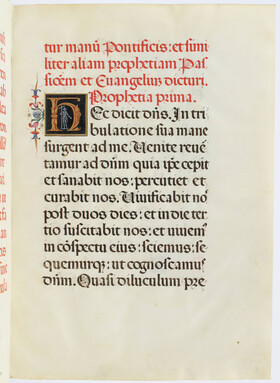 tur manū Pontificis: et simi
liter aliam prophetiam Pas
sioēm et Evangeliū dicturi.
Prophetia prima.
Hec dicit dn̄s. In tri
bulatione sua mane
surgent ad me. Venite revē
tamur ad dn̄m quia ip̄e cepit
et sanabit nos: percutiet et
curabit nos. Vivificabit nos
post duos dies: et in die ter
tio suscitabit nos: et vivem̄
in cōspectu eius: sciemus: se
quemurq; ut cognoscamus
dn̄m. Quasi diluculum pre